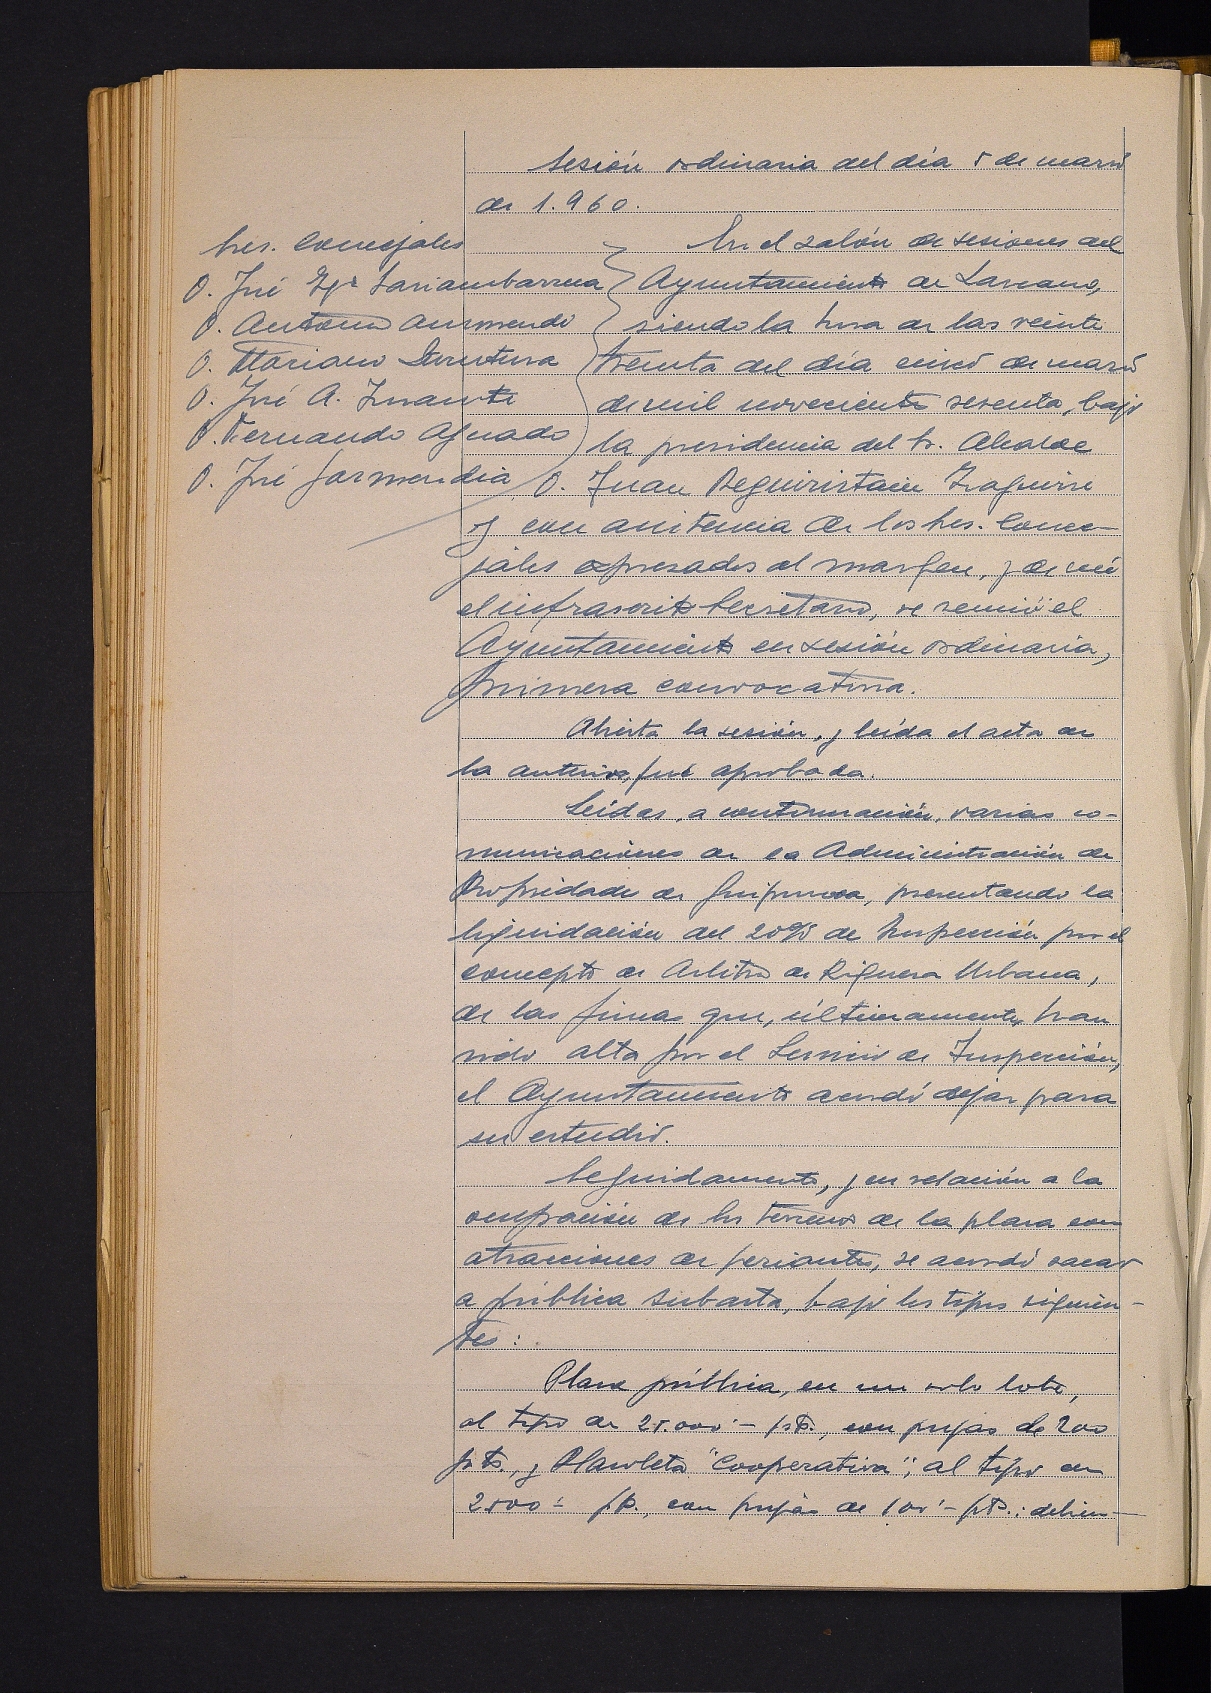 Sesión ordinaria del día 5 de marzo
de 1.960.
Sres. Concejales
D. José Igº Sariambarrena
D. Antonio Aurmendi
D. Mariano
D. José A. Insausti
D. Fernando Aguado
D. José Garmendia
En el salón de sesiones del
Ayuntamiento de Lazcano,
siendo la hora de las veinte
treinta del día cinco de marzo
de mil novecientos sesenta, bajo
la presidencia del Sr. Alcalde
D. Juan Beguiristain Izaguirre
y con asistencia de los Sres. Conce-
jales expresados al margen, y de mí
el infrascrito Secretario, se reunió el
Ayuntamiento en sesión ordinaria,
primera convocatoria.
Abierta la sesión, y leída el acta de
la anterior, fué aprobada.
Leídas, a continuación, varias co-
municaciones de la Administración de
Propiedades de Guipuzcoa, presentando la
liquidación del 20% de Inspección por el
concepto de Arbitrio de Riqueza Urbana,
de las fincas que, últimamente, han
sido alta por el Servicio de Inspección,
el Ayuntamiento acordó dejar para
su estudio.
Seguidamente, y en relación a la
ocupación de los terrenos de la plaza con
atracciones de feriantes, se acordó sacar
a pública subasta, bajo los tipos siguien-
tes:
Plaza pública, en un solo lote,
al tipo de 25.000'- pts., con pujas de 200
pts., y Plazoleta "Cooperativa", al tipo de
2.500'- pts., con pujas de 100'- pts.; debien-